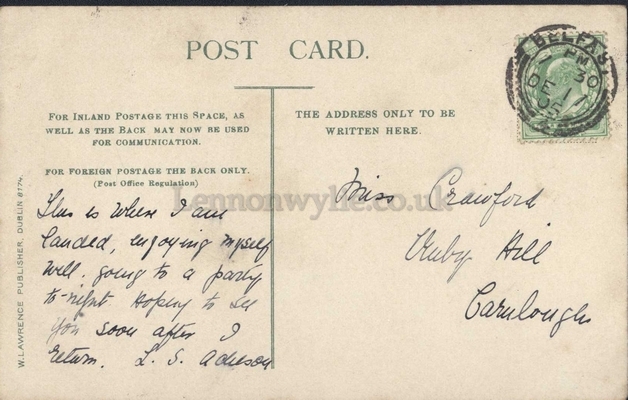 POST CARD.
FOR INLAND POSTAGE THIS SPACE, AS
WELL AS THE BACK MAY NOW BE USED
FOR COMMUNICATION.
FOR FOREIGN POSTAGE THE BACK ONLY.
(Post Office Regulation)
This is where I am
landed, enjoying myself
well. going to a party
to-night Hoping to see
you soon after I
return. L. S. Acheson
THE ADDRESS ONLY TO BE
WRITTEN HERE.
Miss Crawford
Ruby Hill
Carnlough
BELFAS
PM
30
DE 1
05
W. LAWRENCE PUBLISHER, DUBLIN 8174.
Lennonwylie.co.uk